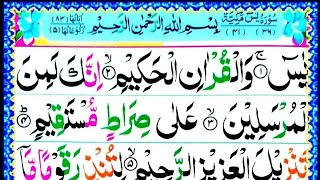 سُوْرَةُ يٰسٓ مَكِّيَّةٌ
بِسْمِ اللّٰهِ الرَّحْمٰنِ الرَّحِيْمِ
اٰيَاتُهَا (٨٣)
(٣٦) (٤١)
رُكُوْعَاتُهَا (٥)
يٰسٓ ۚ ﴿١﴾ وَالْقُرْاٰنِ الْحَكِيْمِ ﴿٢﴾ اِنَّكَ لَمِنَ
الْمُرْسَلِيْنَ ﴿٣﴾ عَلٰى صِرَاطٍ مُّسْتَقِيْمٍ ﴿٤﴾
تَنْزِيْلَ الْعَزِيْزِ الرَّحِيْمِ ﴿٥﴾ لِتُنْذِرَ قَوْمًا مَّاۤ